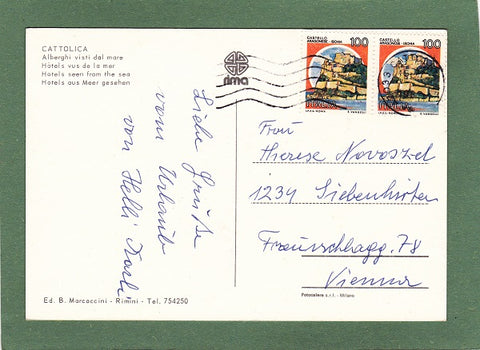 CATTOLICA
Alberghi visti dal mare
Hôtels vus de la mer
Hotels seen from the sea
Hotels aus Meer gesehen
sima
CASTELLO
ARAGONESE - ISCHIA 100
CASTELLO
ARAGONESE - ISCHIA 100
Liebe Grüße
vom Urlaub
von Helli Karli
Frau
Therese Novoszel
1234 Siebenhirten
78
Vienna
Ed. B. Marcaccini - Rimini - Tel. 754250
Fotocolora s.r.l. - Milano